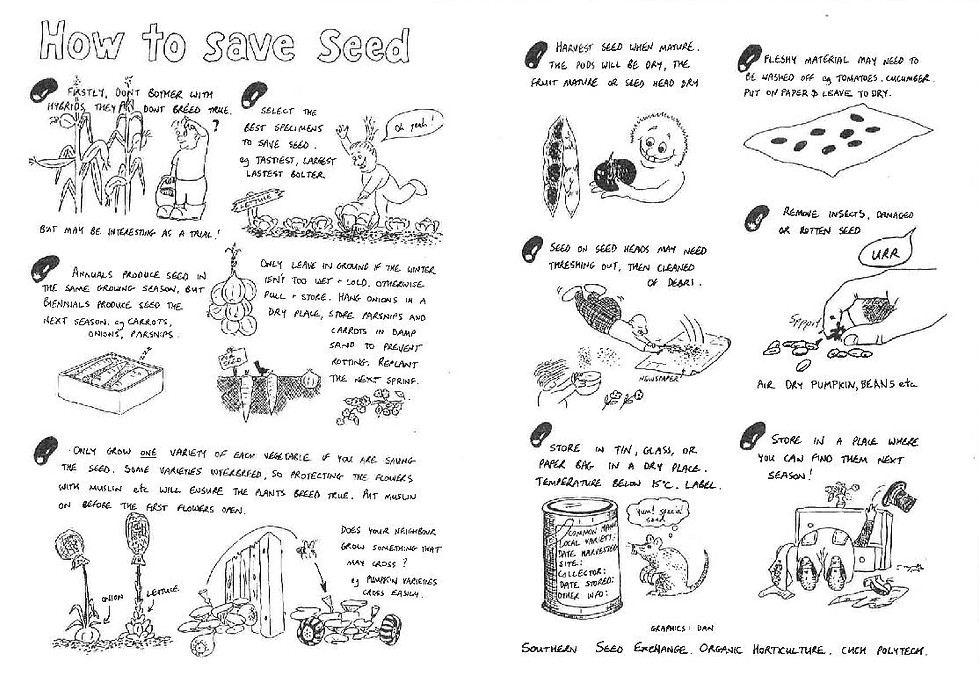 How to save Seed
FIRSTLY, DON'T BOTHER WITH
HYBRIDS, THEY DON'T BREED TRUE.
?
BUT MAY BE INTERESTING AS A TRIAL!
SELECT THE
BEST SPECIMENS
TO SAVE SEED.
eg TASTIEST, LARGEST
LASTEST BOLTER
Oh yeah!
LETTUCE
ANNUALS PRODUCE SEED IN
THE SAME GROWING SEASON, BUT
BIENNIALS PRODUCE SEED THE
NEXT SEASON. eg CARROTS,
ONIONS, PARSNIPS.
ONLY LEAVE IN GROUND IF THE WINTER
ISN'T TOO WET + COLD. OTHERWISE
PULL + STORE. HANG ONIONS IN A
DRY PLACE, STORE PARSNIPS AND
CARROTS IN DAMP
SAND TO PREVENT
ROTTING. REPLANT
THE NEXT SPRING.
ONLY GROW ONE VARIETY OF EACH VEGETABLE IF YOU ARE SAVING
THE SEED. SOME VARIETIES INTERBREED, SO PROTECTING THE FLOWERS
WITH MUSLIN etc WILL ENSURE THE PLANTS BREED TRUE. PUT MUSLIN
ON BEFORE THE FIRST FLOWERS OPEN.
ONION
LETTUCE
DOES YOUR NEIGHBOUR
GROW SOMETHING THAT
MAY CROSS?
eg PUMPKIN VARIETIES
CROSS EASILY.
HARVEST SEED WHEN MATURE.
THE PODS WILL BE DRY, THE
FRUIT MATURE OR SEED HEAD DRY
SEED ON SEED HEADS MAY NEED
THRESHING OUT, THEN CLEANED
OF DEBRI.
NEWSPAPER
STORE IN TIN, GLASS, OR
PAPER BAG IN A DRY PLACE.
TEMPERATURE BELOW 15°C. LABEL.
COMMON NAME
LOCAL VARIETY:
DATE HARVESTED
SITE:
COLLECTOR:
DATE STORED:
OTHER INFO:
Yum! special
seed
FLESHY MATERIAL MAY NEED TO
BE WASHED OFF eg TOMATOES. CUCUMBER.
PUT ON PAPER & LEAVE TO DRY.
REMOVE INSECTS, DAMAGED
OR ROTTEN SEED
URR
AIR DRY PUMPKIN, BEANS etc
STORE IN A PLACE WHERE
YOU CAN FIND THEM NEXT
SEASON!
GRAPHICS: DAN
SOUTHERN SEED EXCHANGE. ORGANIC HORTICULTURE. CHCH POLYTECH.